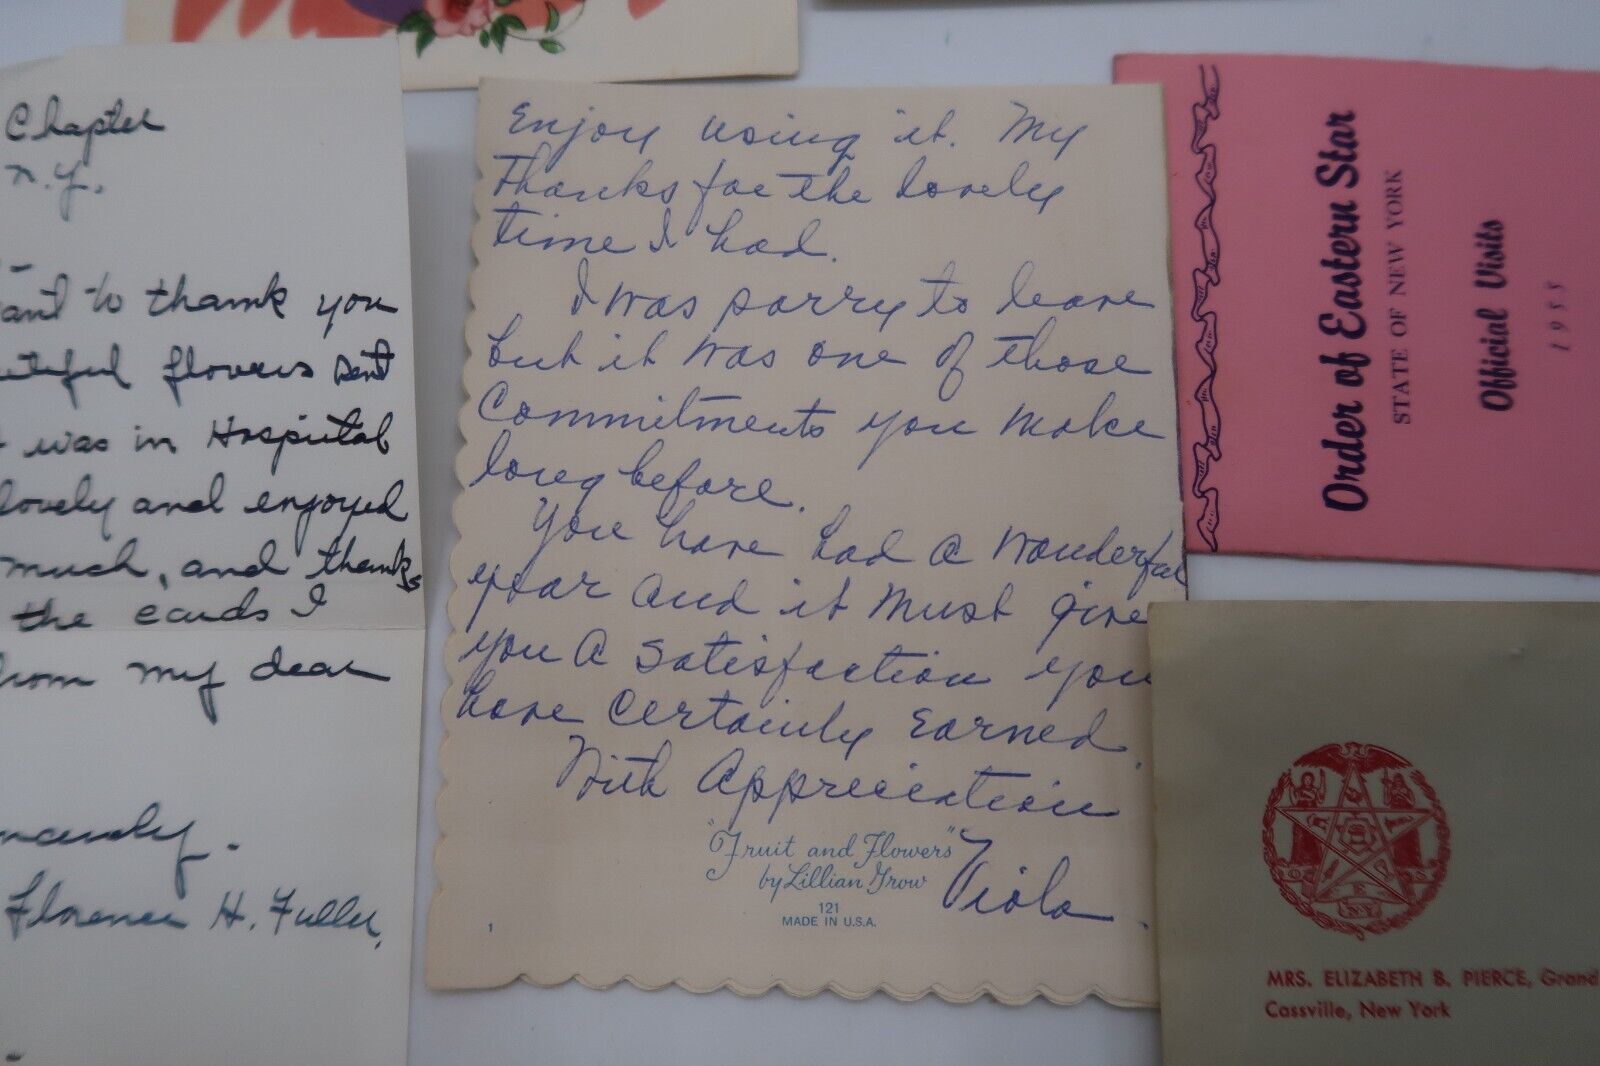 Chapter
N.Y.
ant to thank you
utiful flowers sent
was in Hospital
lovely and enjoyed
much, and thanks
the cards I
rom my dear
ncerely.
Florence H. Fuller,
Enjoy using it. My
thanks for the lovely
time I had.
I was sorry to leave
but it was one of those
Commitments you make
long before.
You have had a wonderful
year and it must give
you a satisfaction you
have certainly earned.
With Appreciation
Viola.
"Fruit and Flowers"
by Lillian Grow
121
MADE IN U.S.A.
1
Order of Eastern Star
STATE OF NEW YORK
Official Visits
1955
O E S
N.Y.
MRS. ELIZABETH B. PIERCE, Grand
Cassville, New York